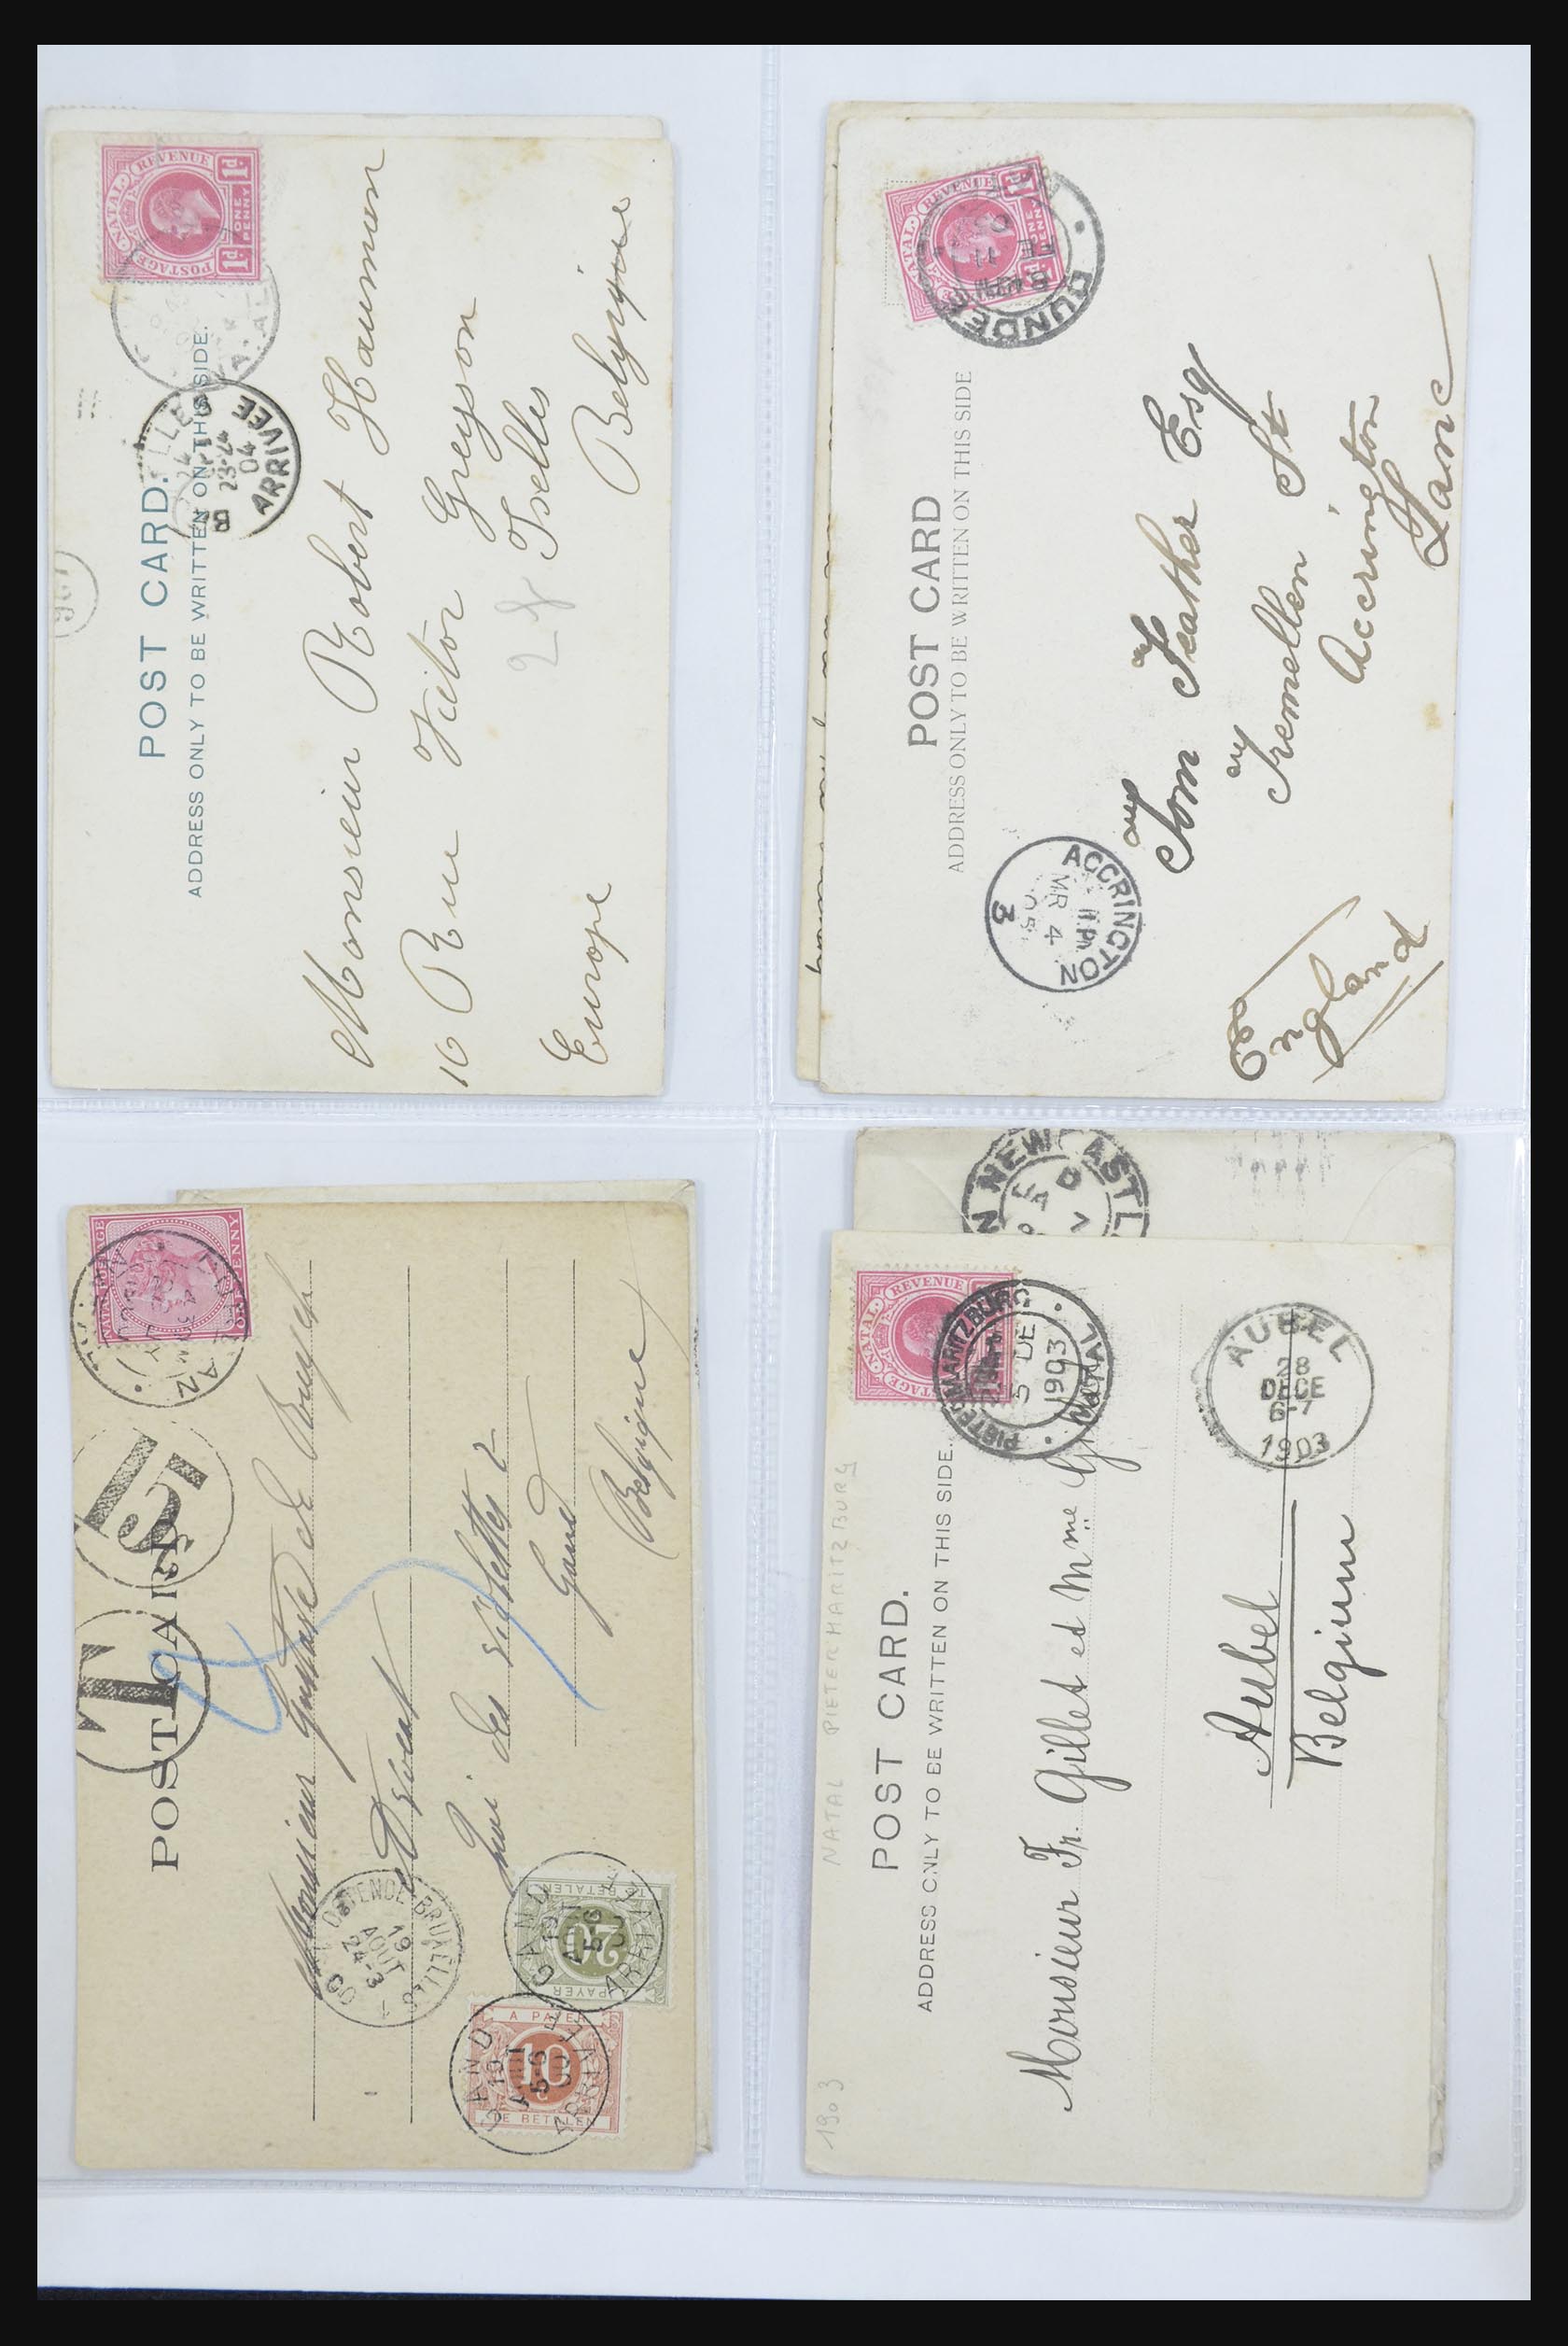 POSTAGE NATAL REVENUE
1d ONE PENNY 1d
POST CARD.
ADDRESS ONLY TO BE WRITTEN ON THIS SIDE.
24
23-24
04
ARRIVEE
Monsieur Robert Hauman
10 Rue Victor Greyson
Ixelles
28
Europe Belgique
NATAL REVENUE
1d ONE PENNY 1d
DUNDEE
POST CARD
ADDRESS ONLY TO BE WRITTEN ON THIS SIDE
ACCRINGTON
MR 4
05
3
Tom Feather Esq
Tremellen St
Accrington
Lanc
England
ONE PENNY
T
15
POST CARD
Monsieur Gustave de
Gand
Belgique
OSTENDE BRUXELLES
19
AOUT
GAND
19
5-6
ARRIVEE
20
TE BETALEN
A PAYER
GAND
19
5-6
ARRIVEE
A PAYER
10
TE BETALEN
NEWCASTL
POSTAGE NATAL REVENUE
PIETERMARITZBURG
5 DE
1903
NATAL
AUBEL
28
DECE
6-7
1903
NATAL PIETERMARITZBURG
1903
POST CARD.
ADDRESS ONLY TO BE WRITTEN ON THIS SIDE.
Monsieur Fr. Gillet et Mme
Aubel
Belgium